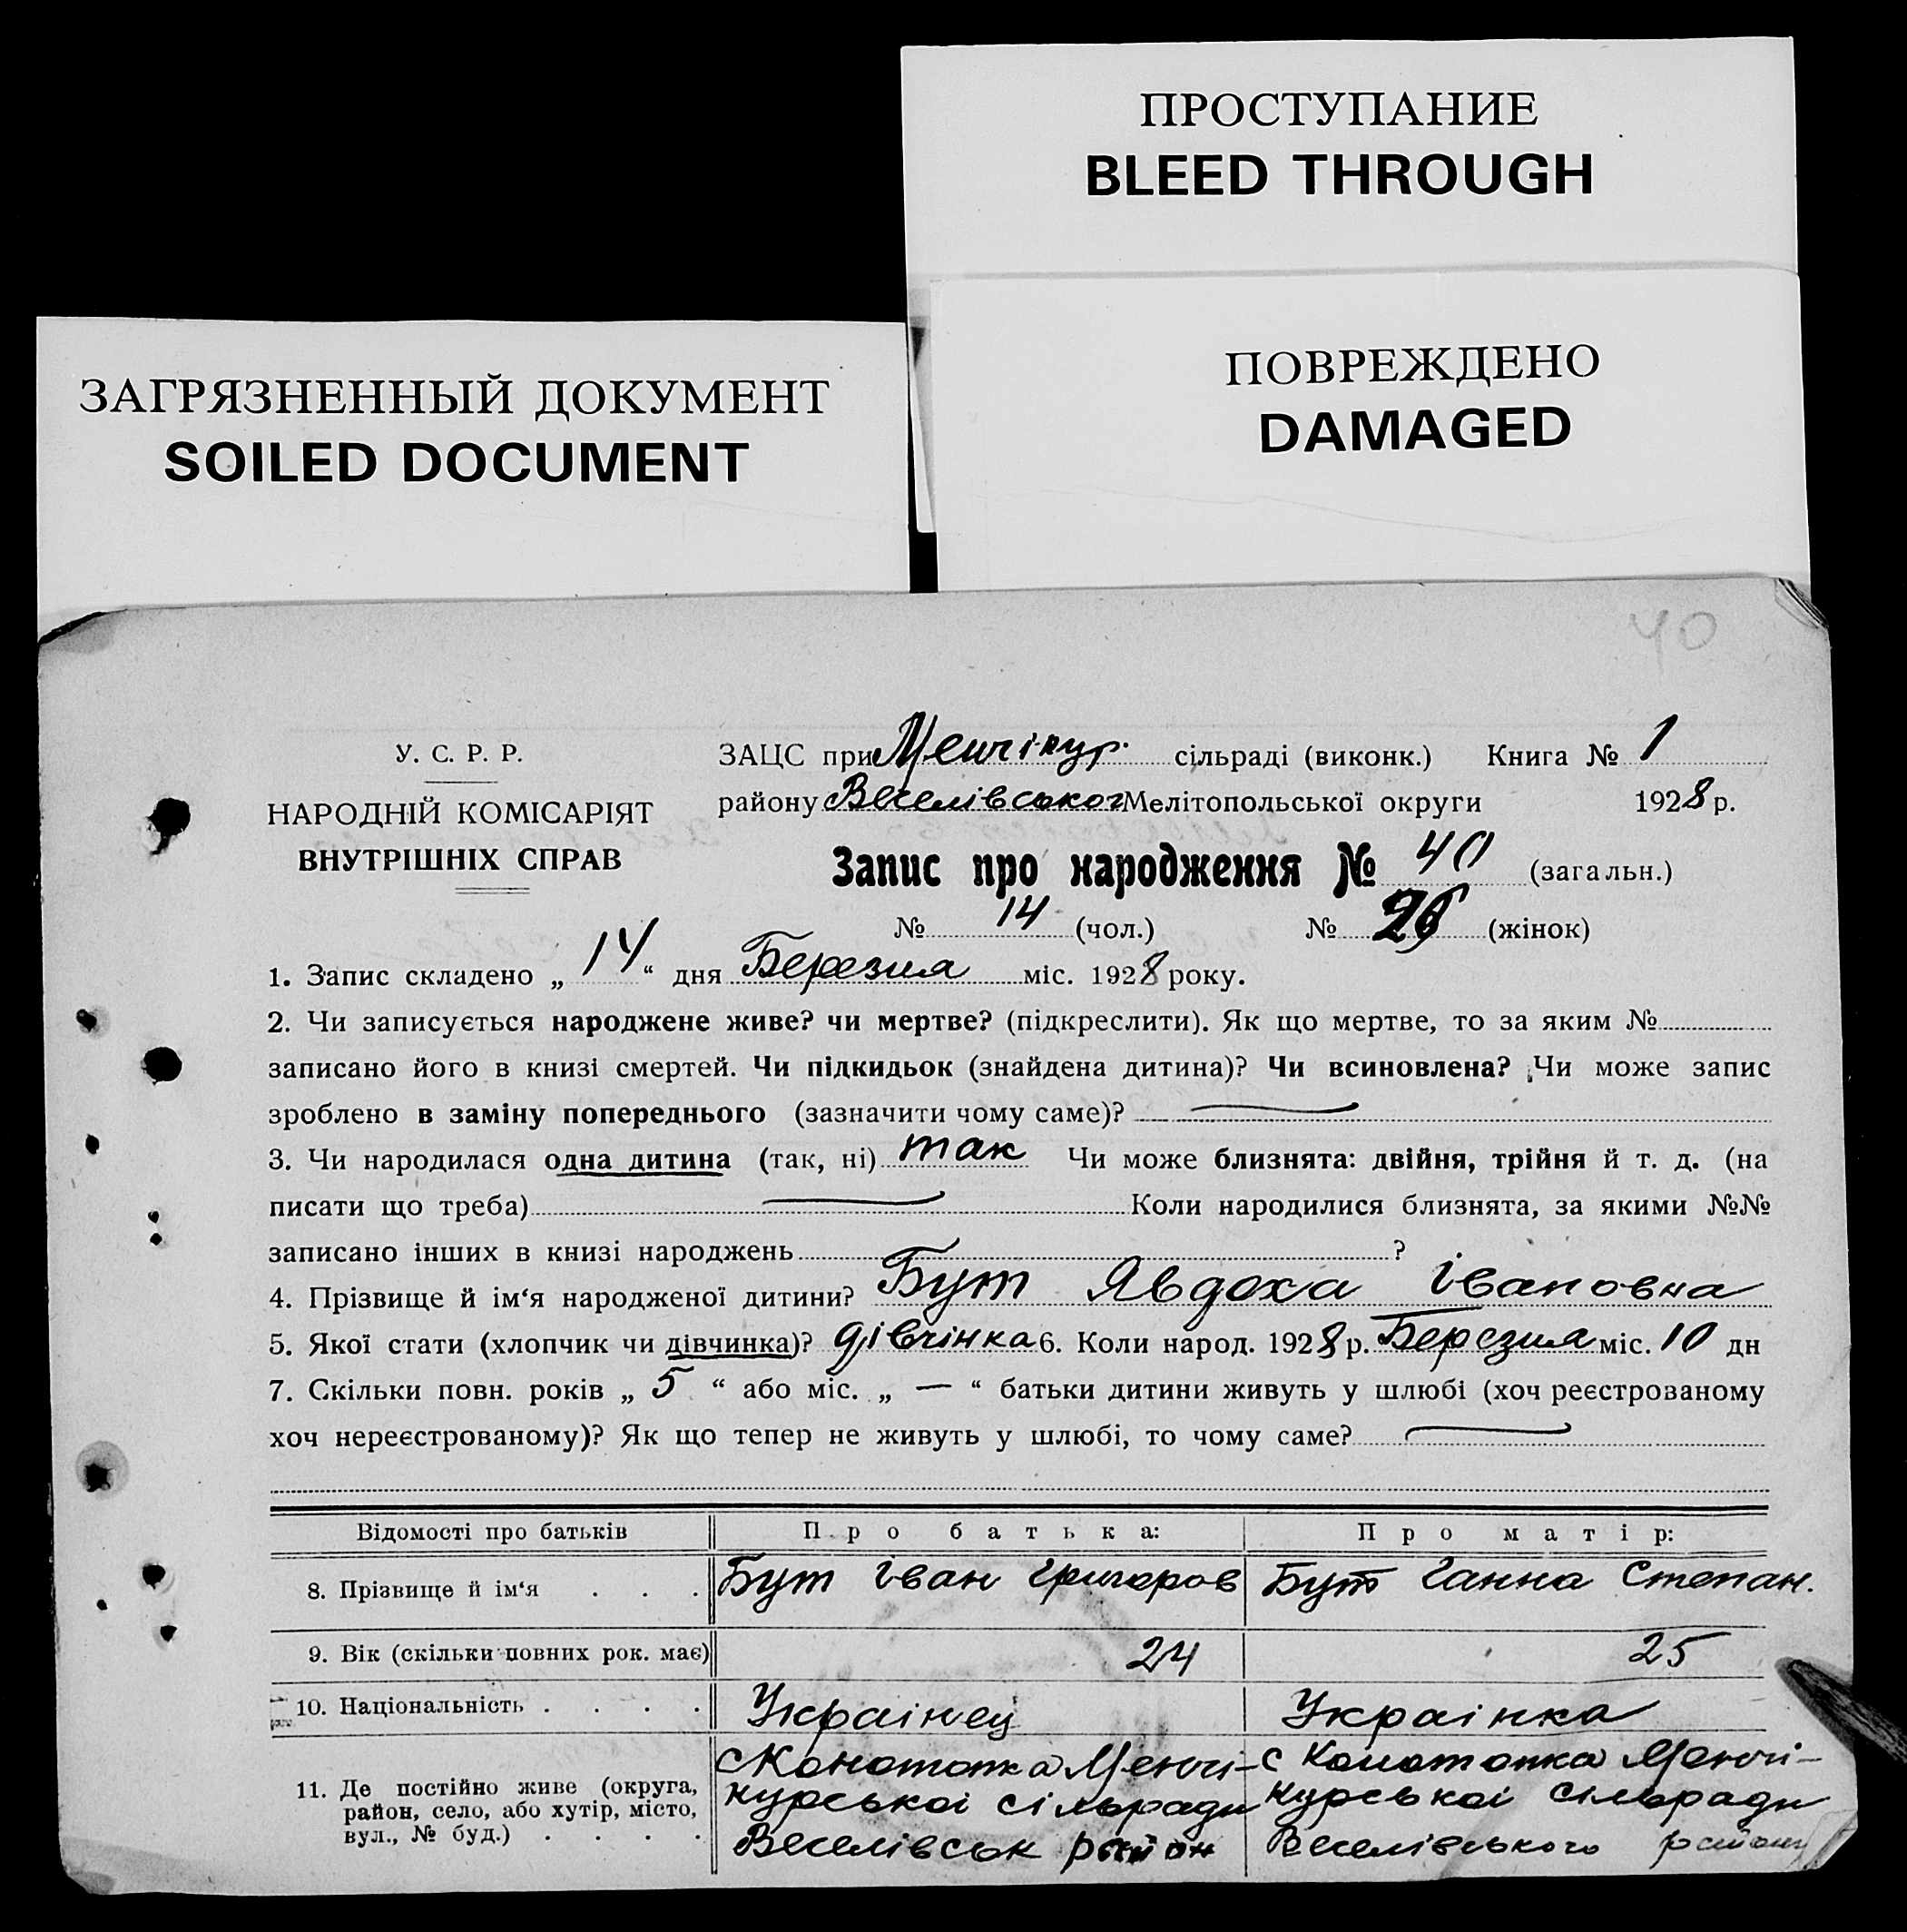 ПРОСТУПАНИЕ
BLEED THROUGH
ПОВРЕЖДЕНО
DAMAGED
ЗАГРЯЗНЕННЫЙ ДОКУМЕНТ
SOILED DOCUMENT
40
У. С. Р. Р.
НАРОДНІЙ КОМІСАРІЯТ
ВНУТРІШНІХ СПРАВ
ЗАЦС при Менчікур. сільраді (виконк.) Книга № 1
району Веселівського Мелітопольської округи 1928 р.
Запис про народження № 40 (загальн.)
№ 14 (чол.) № 26 (жінок)
1. Запис складено „ 14 “ дня Березня міс. 1928 року.
2. Чи записується народжене живе? чи мертве? (підкреслити). Як що мертве, то за яким №
записано його в книзі смертей. Чи підкидьок (знайдена дитина)? Чи всиновлена? Чи може запис
зроблено в заміну попереднього (зазначити чому саме)? —
3. Чи народилася одна дитина (так, ні) так Чи може близнята: двійня, трійня й т. д. (на
писати що треба) — Коли народилися близнята, за якими №№
записано інших в книзі народжень ?
4. Прізвище й ім‘я народженої дитини? Бут Явдоха Івановна
5. Якої стати (хлопчик чи дівчинка)? дівчінка 6. Коли народ. 1928 р. Березня міс. 10 дн
7. Скільки повн. років „ 5 “ або міс. „ — “ батьки дитини живуть у шлюбі (хоч реєстрованому
хоч нереєстрованому)? Як що тепер не живуть у шлюбі, то чому саме? —
Відомості про батьків Про батька: Про матір:
8. Прізвище й ім‘я . . . Бут Іван Григоров Бут Ганна Степан.
9. Вік (скільки повних рок. має) 24 25
10. Національність . . . . Українец Українка
11. Де постійно живе (округа, район, село, або хутір, місто, вул., № буд.) . . . .
с Конотопка Менчі-
курської сільради
Веселівськ район
с Конотопка Менчі-
курської сільради
Веселівського району